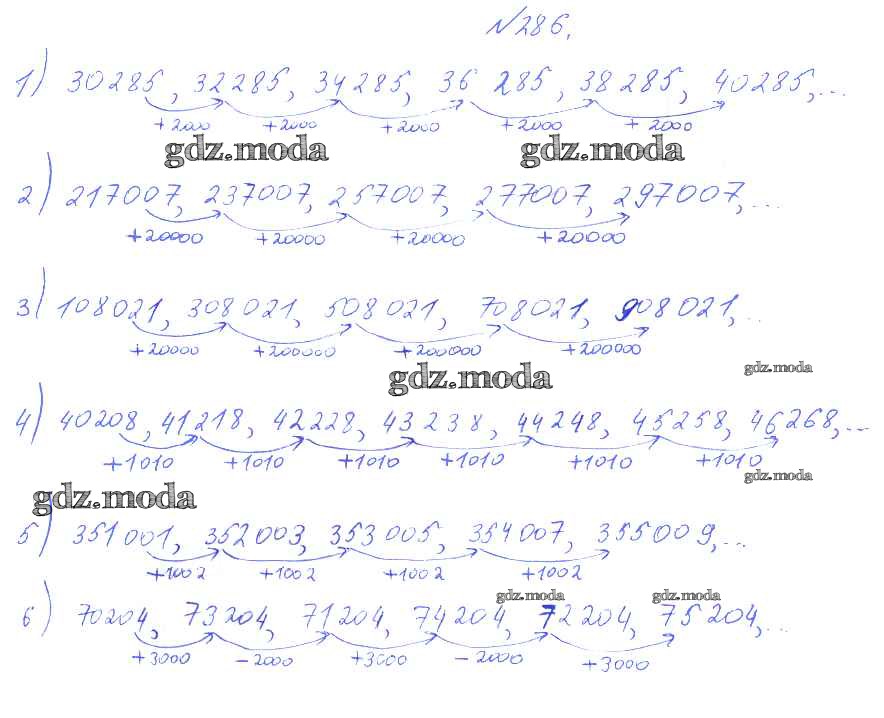 №286.
1) 30285, 32285, 34285, 36 285, 38 285, 40285,...
+2000 +2000 +2000 +2000 +2000
gdz.moda gdz.moda
2) 217007, 237007, 257007, 277007, 297007,...
+20000 +20000 +20000 +20000
3) 108021, 308021, 508021, 708021, 908021,..
+20000 +200000 +200000 +200000
gdz.moda
gdz.moda
4) 40208, 41218, 42228, 43238, 44248, 45258, 46268,...
+1010 +1010 +1010 +1010 +1010 +1010
gdz.moda
gdz.moda
5) 351001, 352003, 353005, 354007, 355009,...
+1002 +1002 +1002 +1002
gdz.moda gdz.moda
6) 70204, 73204, 71204, 74204, 72204, 75204,...
+3000 -2000 +3000 -2000 +3000